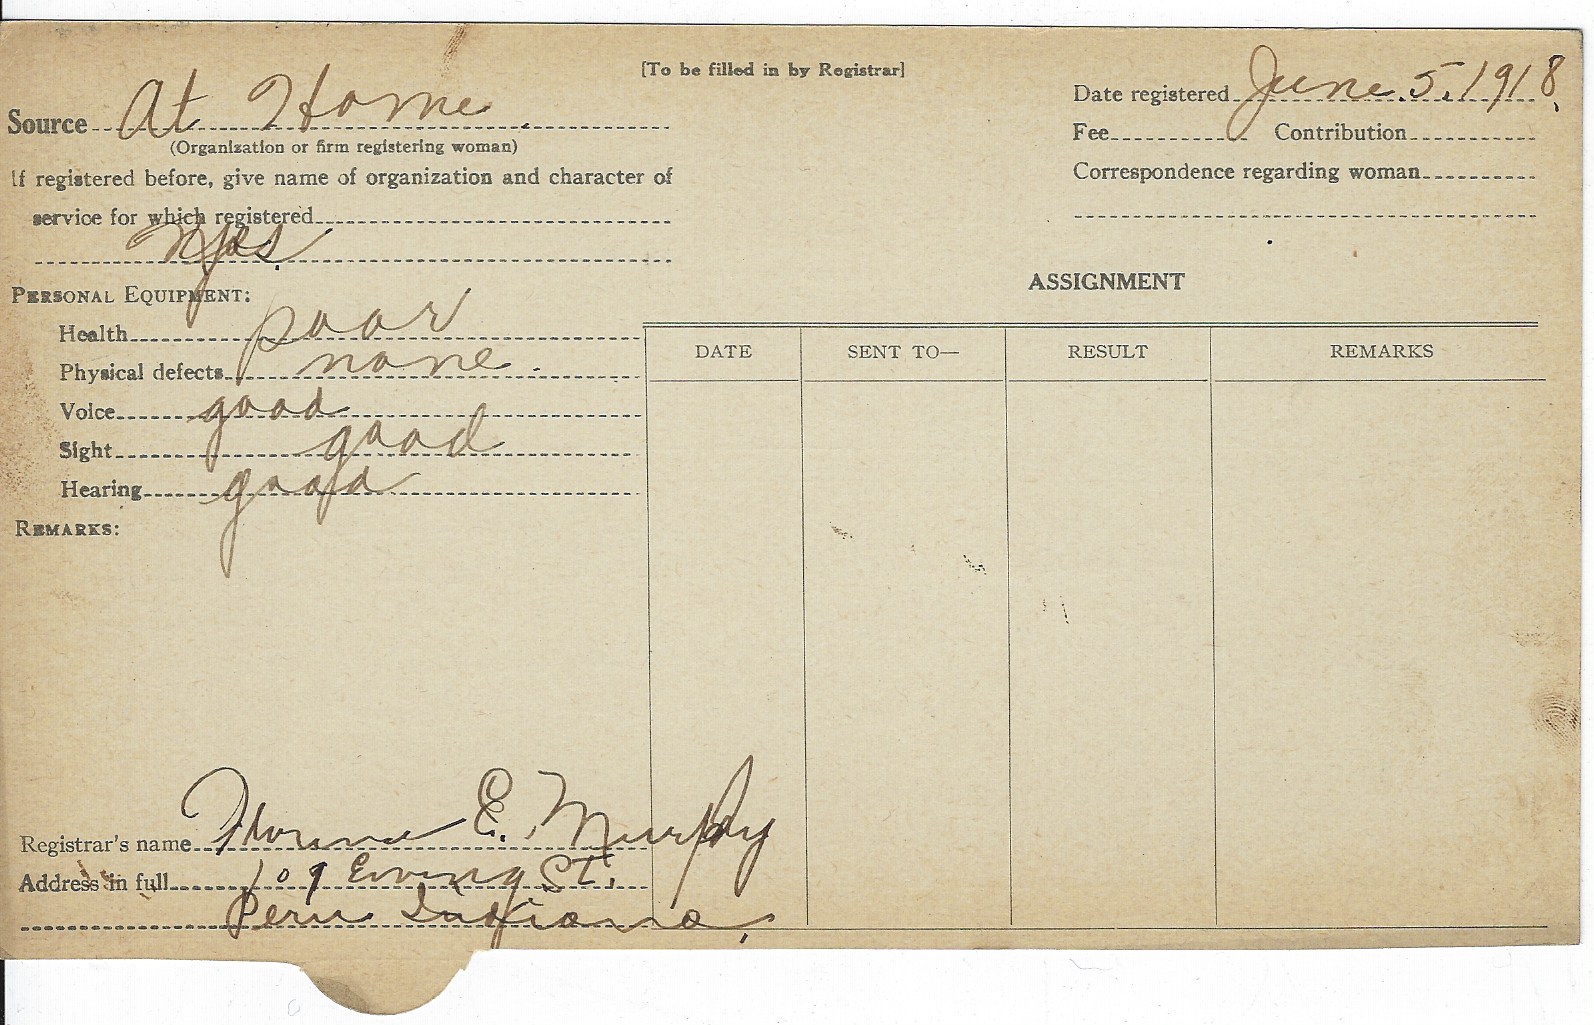 [To be filled in by Registrar]
Source At Home
(Organization or firm registering woman)
If registered before, give name of organization and character of
service for which registered
PERSONAL EQUIPMENT:
Health poor
Physical defects none
Voice good
Sight good
Hearing good
REMARKS:
Registrar's name Florence E. Murphy
Address in full 109 Ewing St.
Peru Indiana
Date registered June 5, 1918
Fee Contribution
Correspondence regarding woman
ASSIGNMENT
DATE SENT TO— RESULT REMARKS